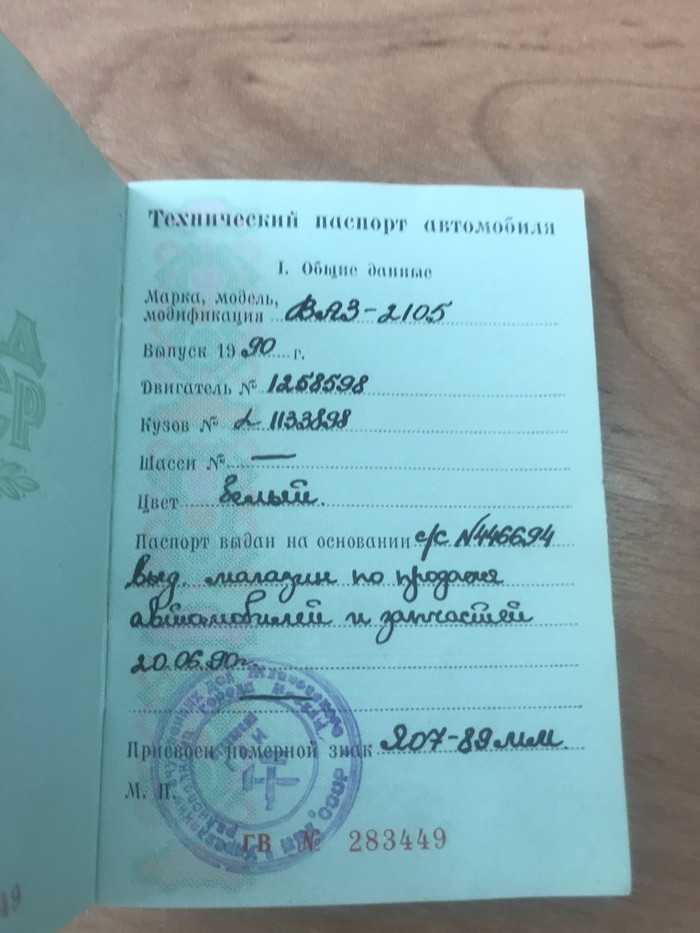 Технический паспорт автомобиля
I. Общие данные
Марка, модель,
модификация ВАЗ-2105
Выпуск 19 90 г.
Двигатель № 1258598
Кузов № L 1133898
Шасси № —
Цвет белый.
Паспорт выдан на основании с/с №446694
выд. магазин по продаже
автомобилей и запчастей
20.06.90г.
Присвоен номерной знак Я07-89мм.
М. П.
ГВ № 283449